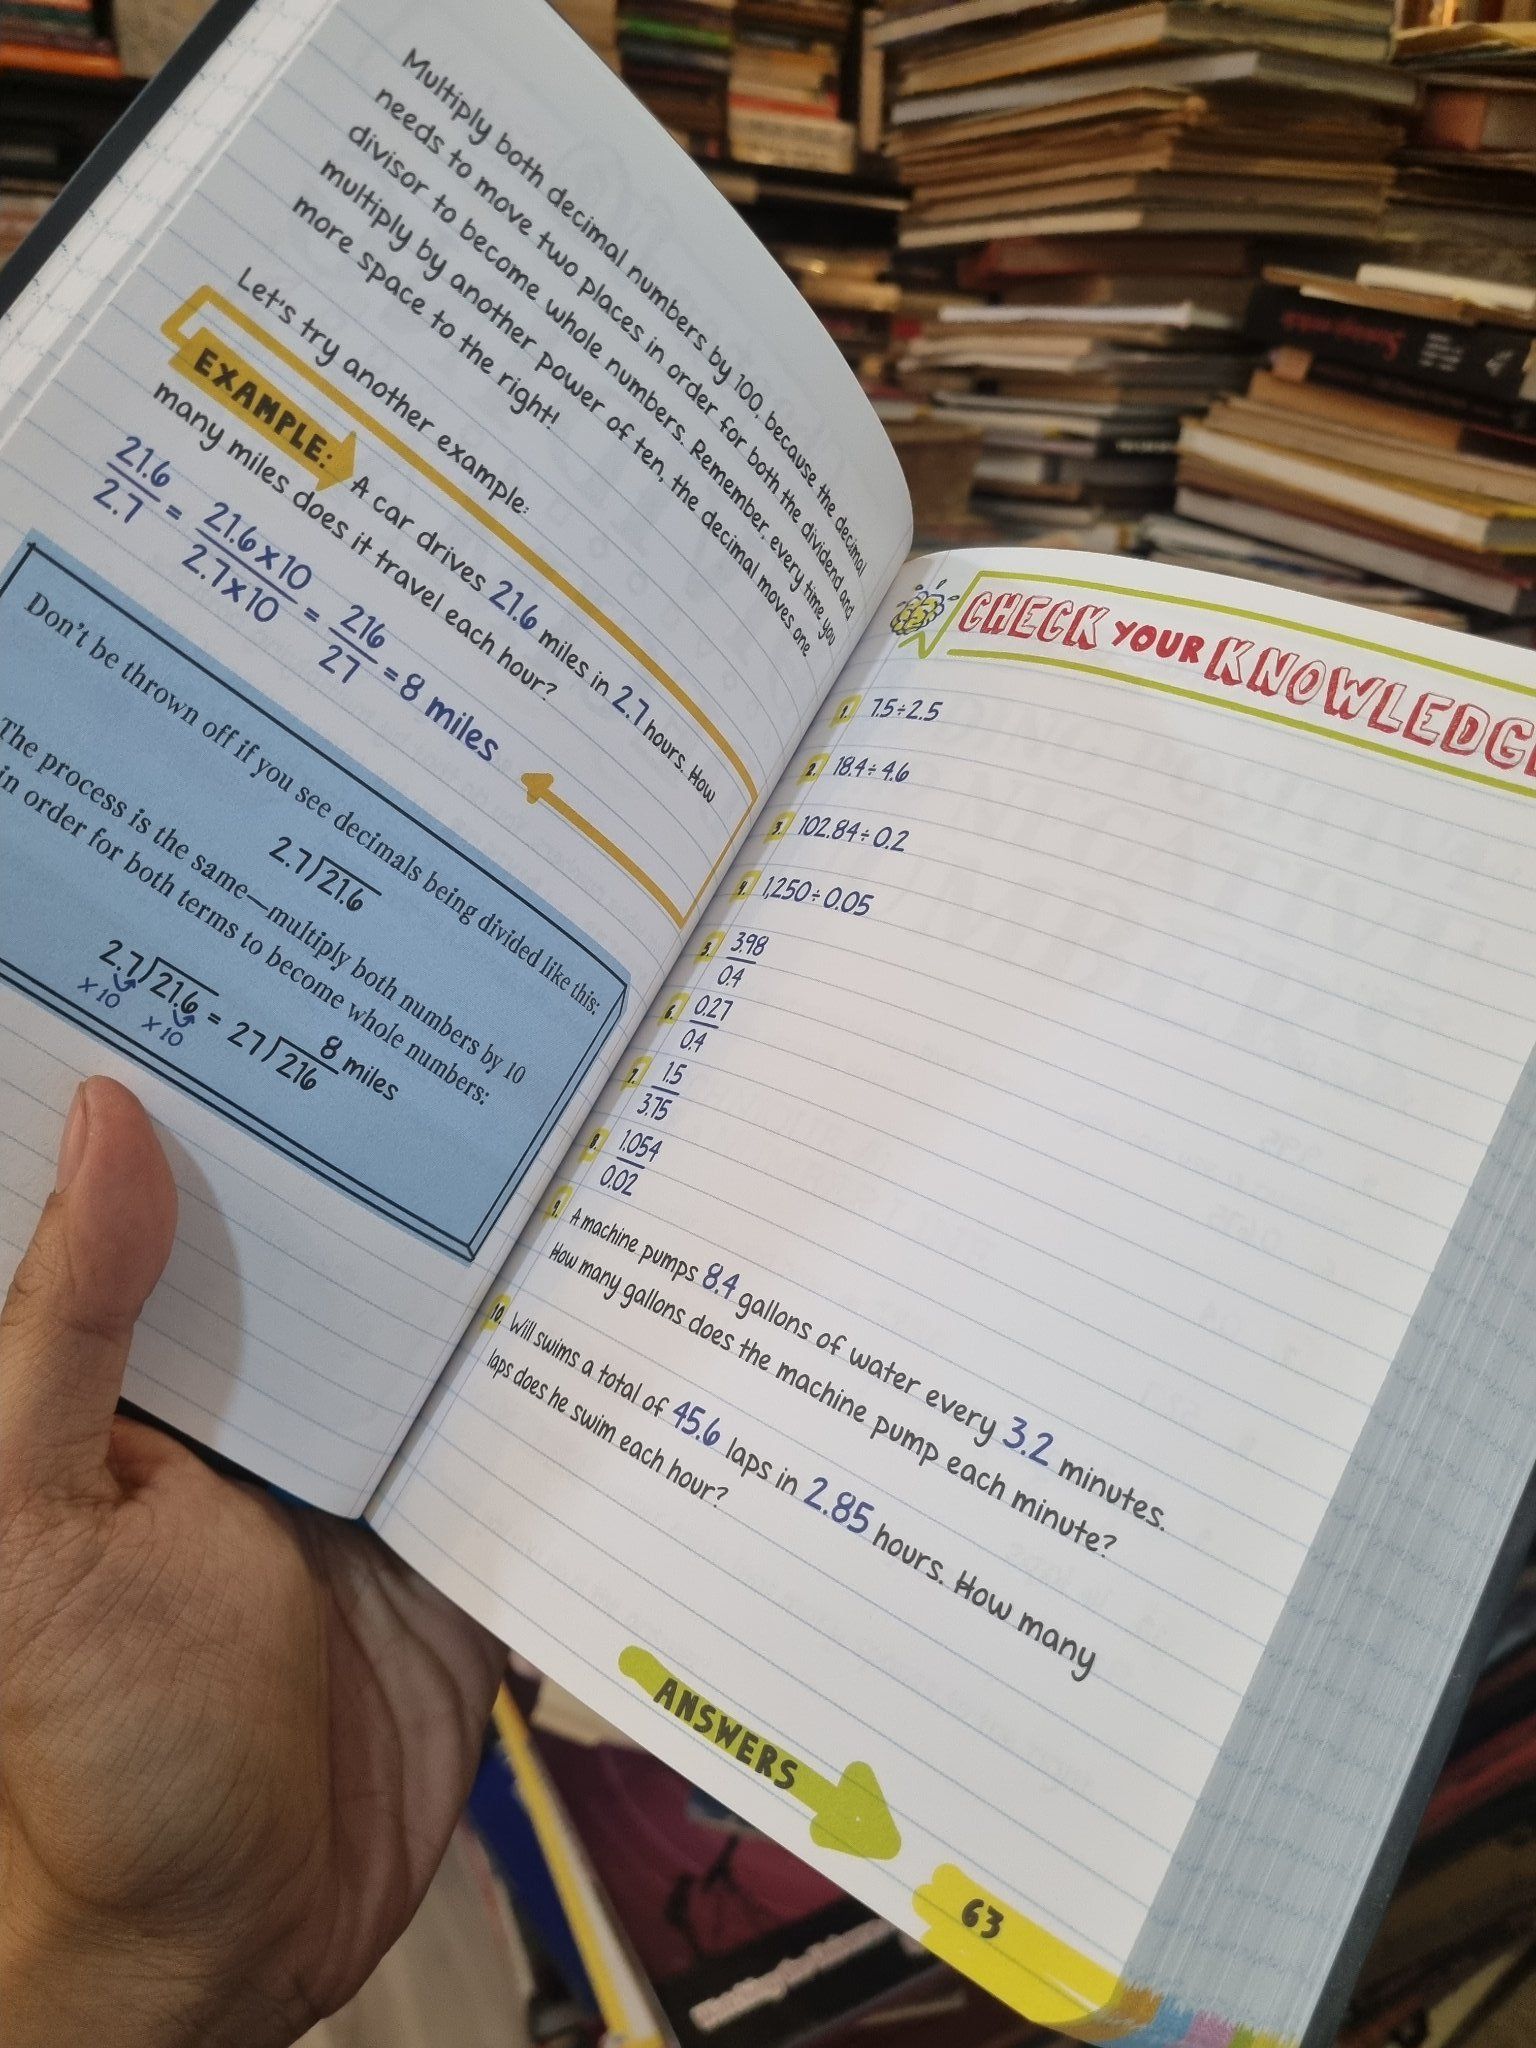 Multiply both decimal numbers by 100, because the decimal
needs to move two places in order for both the dividend and
divisor to become whole numbers. Remember, every time you
multiply by another power of ten, the decimal moves one
more space to the right!
Let's try another example:
EXAMPLE: A car drives 21.6 miles in 2.7 hours. How
many miles does it travel each hour?
21.6/2.7 = 21.6 x 10/2.7 x 10 = 216/27 = 8 miles
Don't be thrown off if you see decimals being divided like this:
2.7)21.6
The process is the same—multiply both numbers by 10
in order for both terms to become whole numbers:
8 miles
2.7)21.6 = 27)216
x 10 x 10
CHECK YOUR KNOWLEDGE
1. 7.5 ÷ 2.5
2. 18.4 ÷ 4.6
3. 102.84 ÷ 0.2
4. 1,250 ÷ 0.05
5. 3.98/0.4
6. 0.27/0.4
7. 1.5/3.75
8. 1.054/0.02
9. A machine pumps 8.4 gallons of water every 3.2 minutes.
How many gallons does the machine pump each minute?
10. Will swims a total of 45.6 laps in 2.85 hours. How many
laps does he swim each hour?
ANSWERS
63